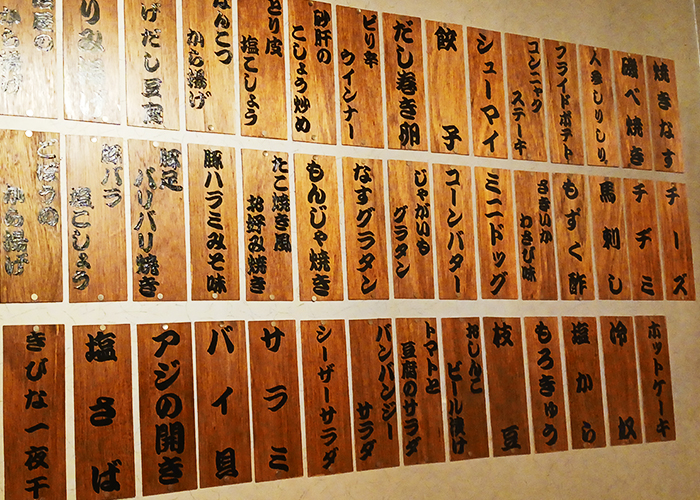 焼きなす
磯べ焼き
人参しりしり
フライドポテト
コンニャク
ステーキ
シューマイ
餃子
だし巻き卵
ピリ辛
ウインナー
砂肝の
こしょう炒め
とり皮
塩こしょう
なんこつ
から揚げ
げだし豆腐
から揚げ
チーズ
チヂミ
馬刺し
もずく酢
さきいか
わさび味
ミニドッグ
コーンバター
じゃがいも
グラタン
なすグラタン
もんじゃ焼き
たこ焼き風
お好み焼き
豚ハラミみそ味
豚足
パリパリ焼き
豚バラ
塩こしょう
ごぼうの
から揚げ
ホットケーキ
冷奴
塩から
もろきゅう
枝豆
おしんこ
ビール漬け
トマトと
豆腐のサラダ
バンバンジー
サラダ
シーザーサラダ
サラミ
バイ貝
アジの開き
塩さば
きびな一夜干